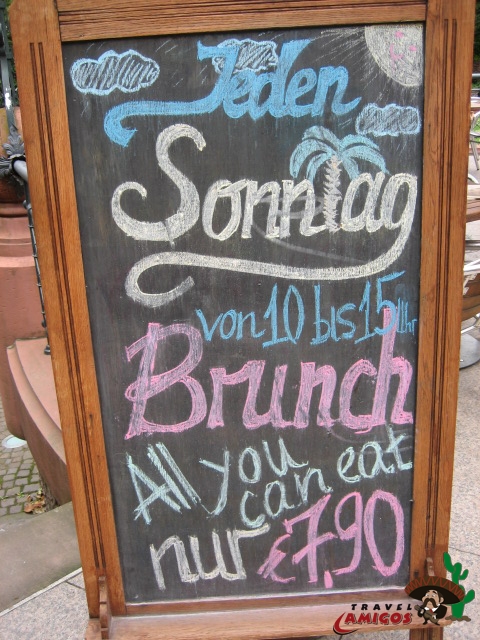 Jeden
Sonntag
von 10 bis 15 Uhr
Brunch
All you
can eat
nur €7,90
TRAVEL
AMIGOS